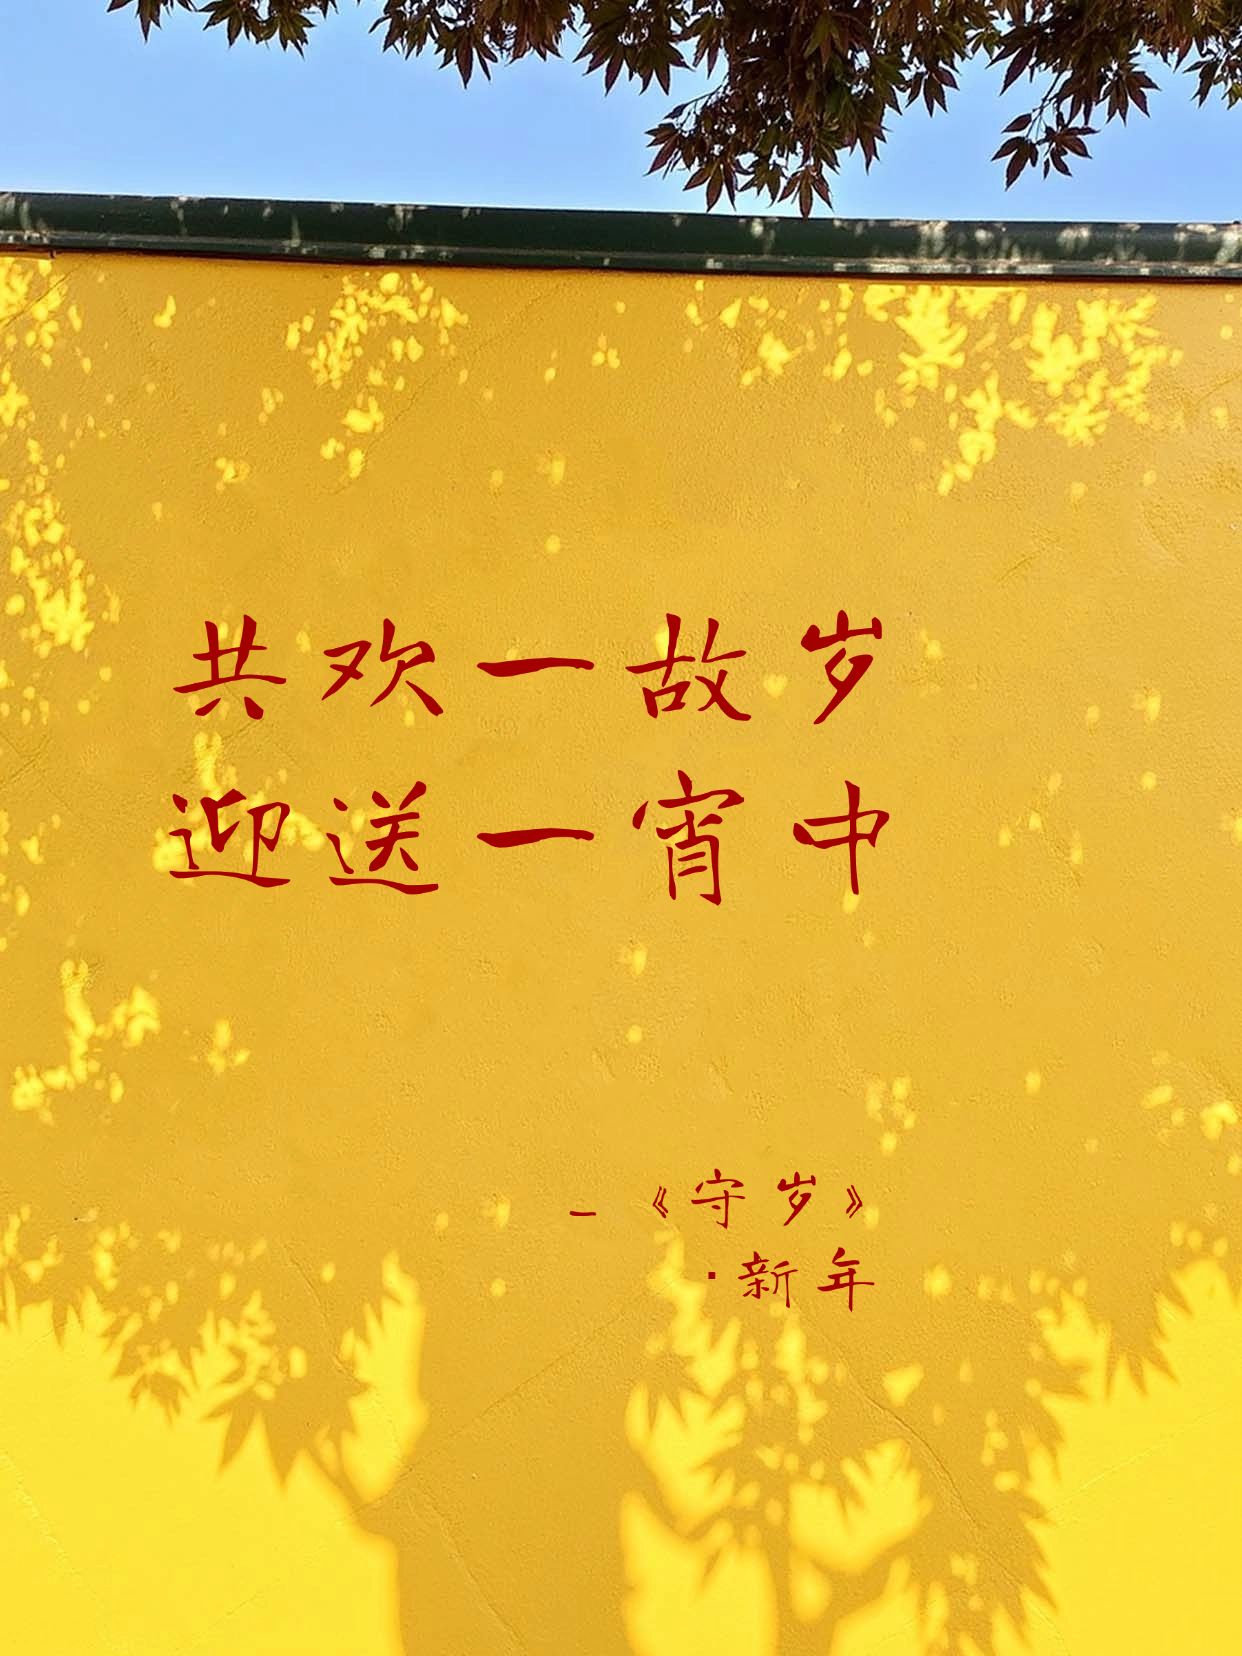 共欢一故岁
迎送一宵中
–《守岁》
·新年